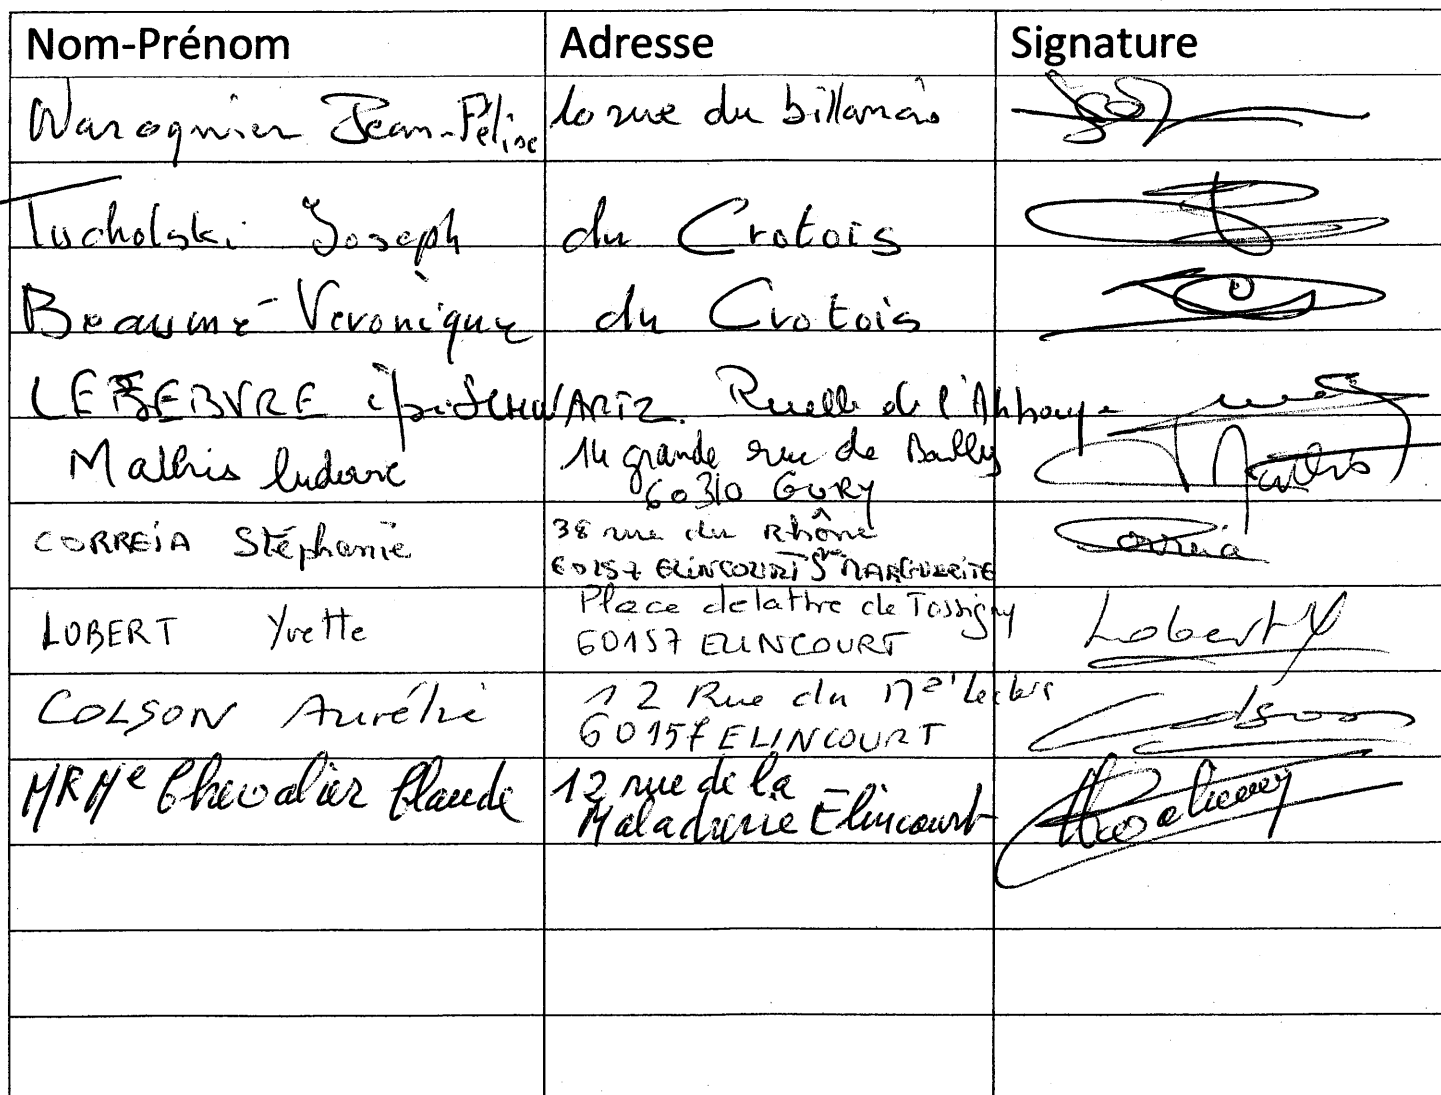 Nom-Prénom Adresse Signature
Waroquier Jean-Félix 10 rue du billanois
Tucholski Joseph du Crotois
Beaumé Veronique du Crotois
LEFEBVRE SCHWARTZ. Ruelle de l'Abbaye
Mathis ludovic 14 grande rue de Bailly
60310 GURY Mathis
CORREIA Stéphanie 38 rue du Rhône
60157 ELINCOURT Ste MARGUERITE Correia
LOBERT Yvette Place delattre de Tassigny
60157 ELINCOURT Lobert Y
COLSON Aurélie 12 Rue du Mal Leclerc
60157 ELINCOURT Colson
MR Me Chevalier Claude 12 rue de la
Maladrerie Elincourt Chevalier